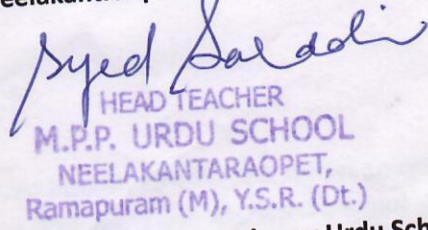 Syed
HEAD TEACHER
M.P.P. URDU SCHOOL
NEELAKANTARAOPET,
Ramapuram (M), Y.S.R. (Dt.)
Urdu Sch